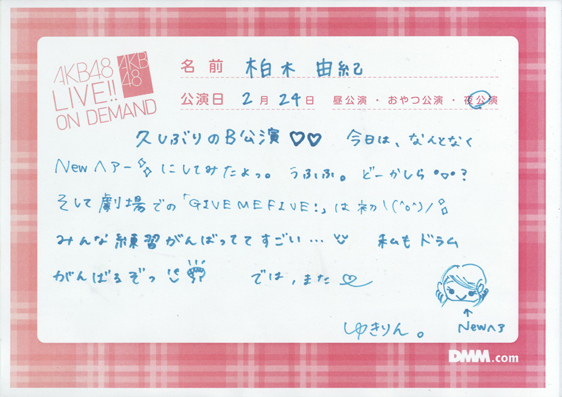 AKB48
LIVE!!
ON DEMAND
AKB
48
名前 柏木 由紀
公演日 2月 24日 昼公演・おやつ公演・夜公演
久しぶりのB公演♡♡ 今日は、なんとなく
Newヘアーにしてみたよっ。うふふ。どーかしら°▽°?
そして劇場での「GIVE ME FIVE!」は初\(^o^)/
みんな練習がんばっててすごい… 私もドラム
がんばるぞっ では、また♡
ゆきりん。
↑
Newヘア
DMM.com